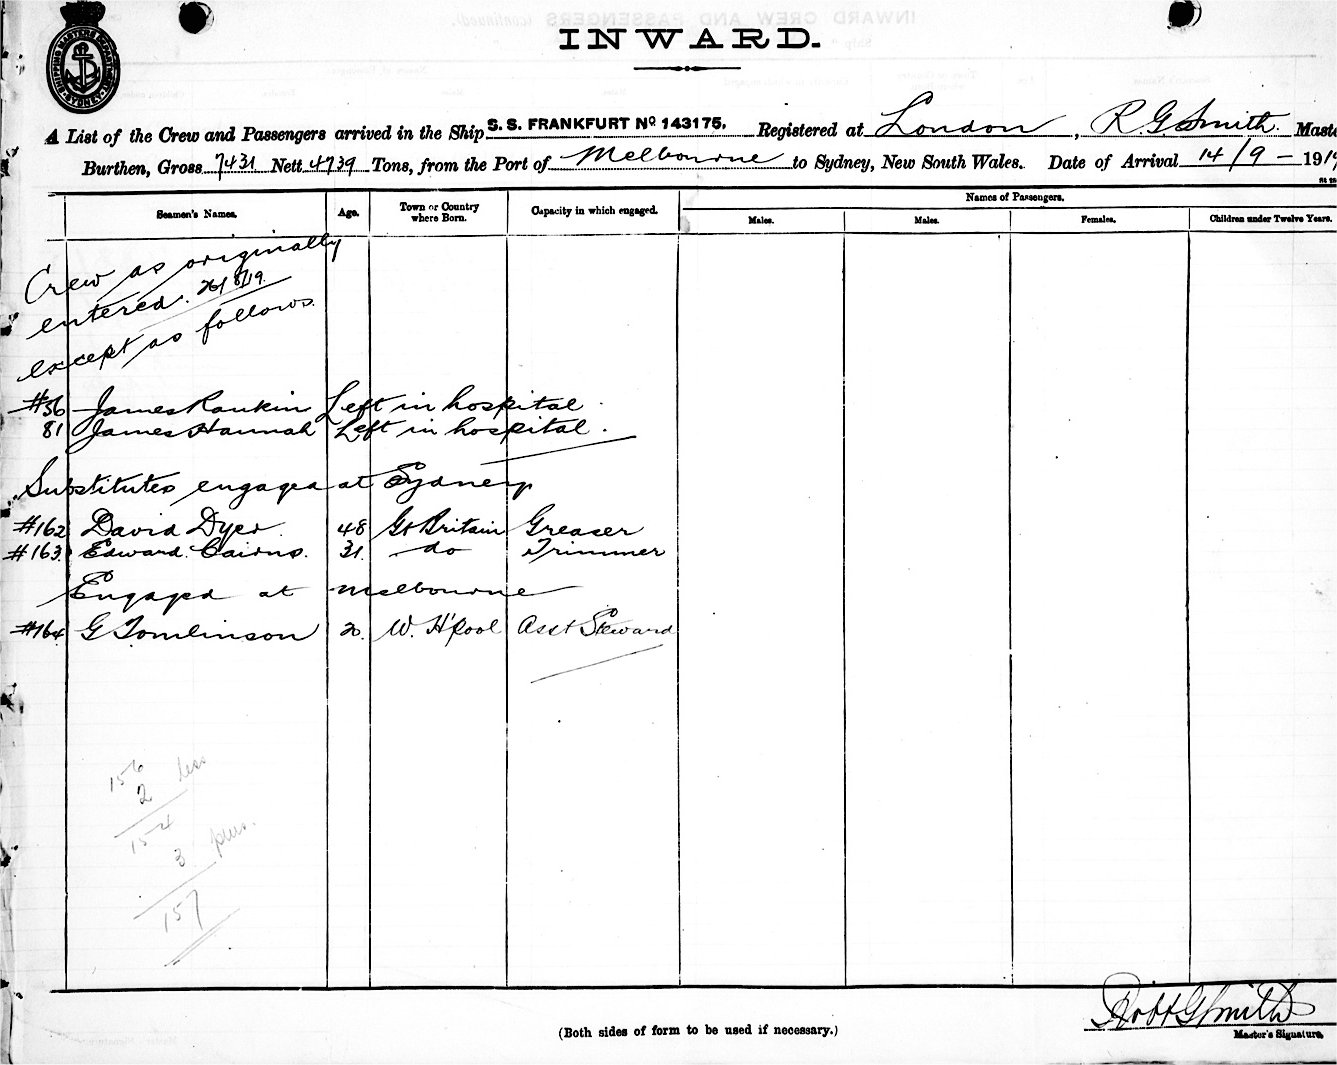 SHIPPING MASTER'S DEPARTMENT
SYDNEY
INWARD.
A List of the Crew and Passengers arrived in the Ship S. S. FRANKFURT No 143175. Registered at London, R. G. Smith. Maste
Burthen, Gross 7431 Nett 4739 Tons, from the Port of Melbourne to Sydney, New South Wales. Date of Arrival 14/9 - 1919
Seamen's Names. Age. Town or Country where Born. Capacity in which engaged. Names of Passengers.
Males. Males. Females. Children under Twelve Years.
Crew as originally
entered. 26/8/19.
except as follows.
#56 James Rankin Left in hospital.
81 James Hannah Left in hospital.
Substitutes engaged at Sydney
#162 David Dyer. 48 Gt Britain Greaser
#163 Edward Cairns. 31. do Trimmer
Engaged at Melbourne
#164 G Tomlinson 20. W. H'pool Asst Steward
156
2 less
154
3 plus.
157
Robt G Smith
Master's Signature.
(Both sides of form to be used if necessary.)